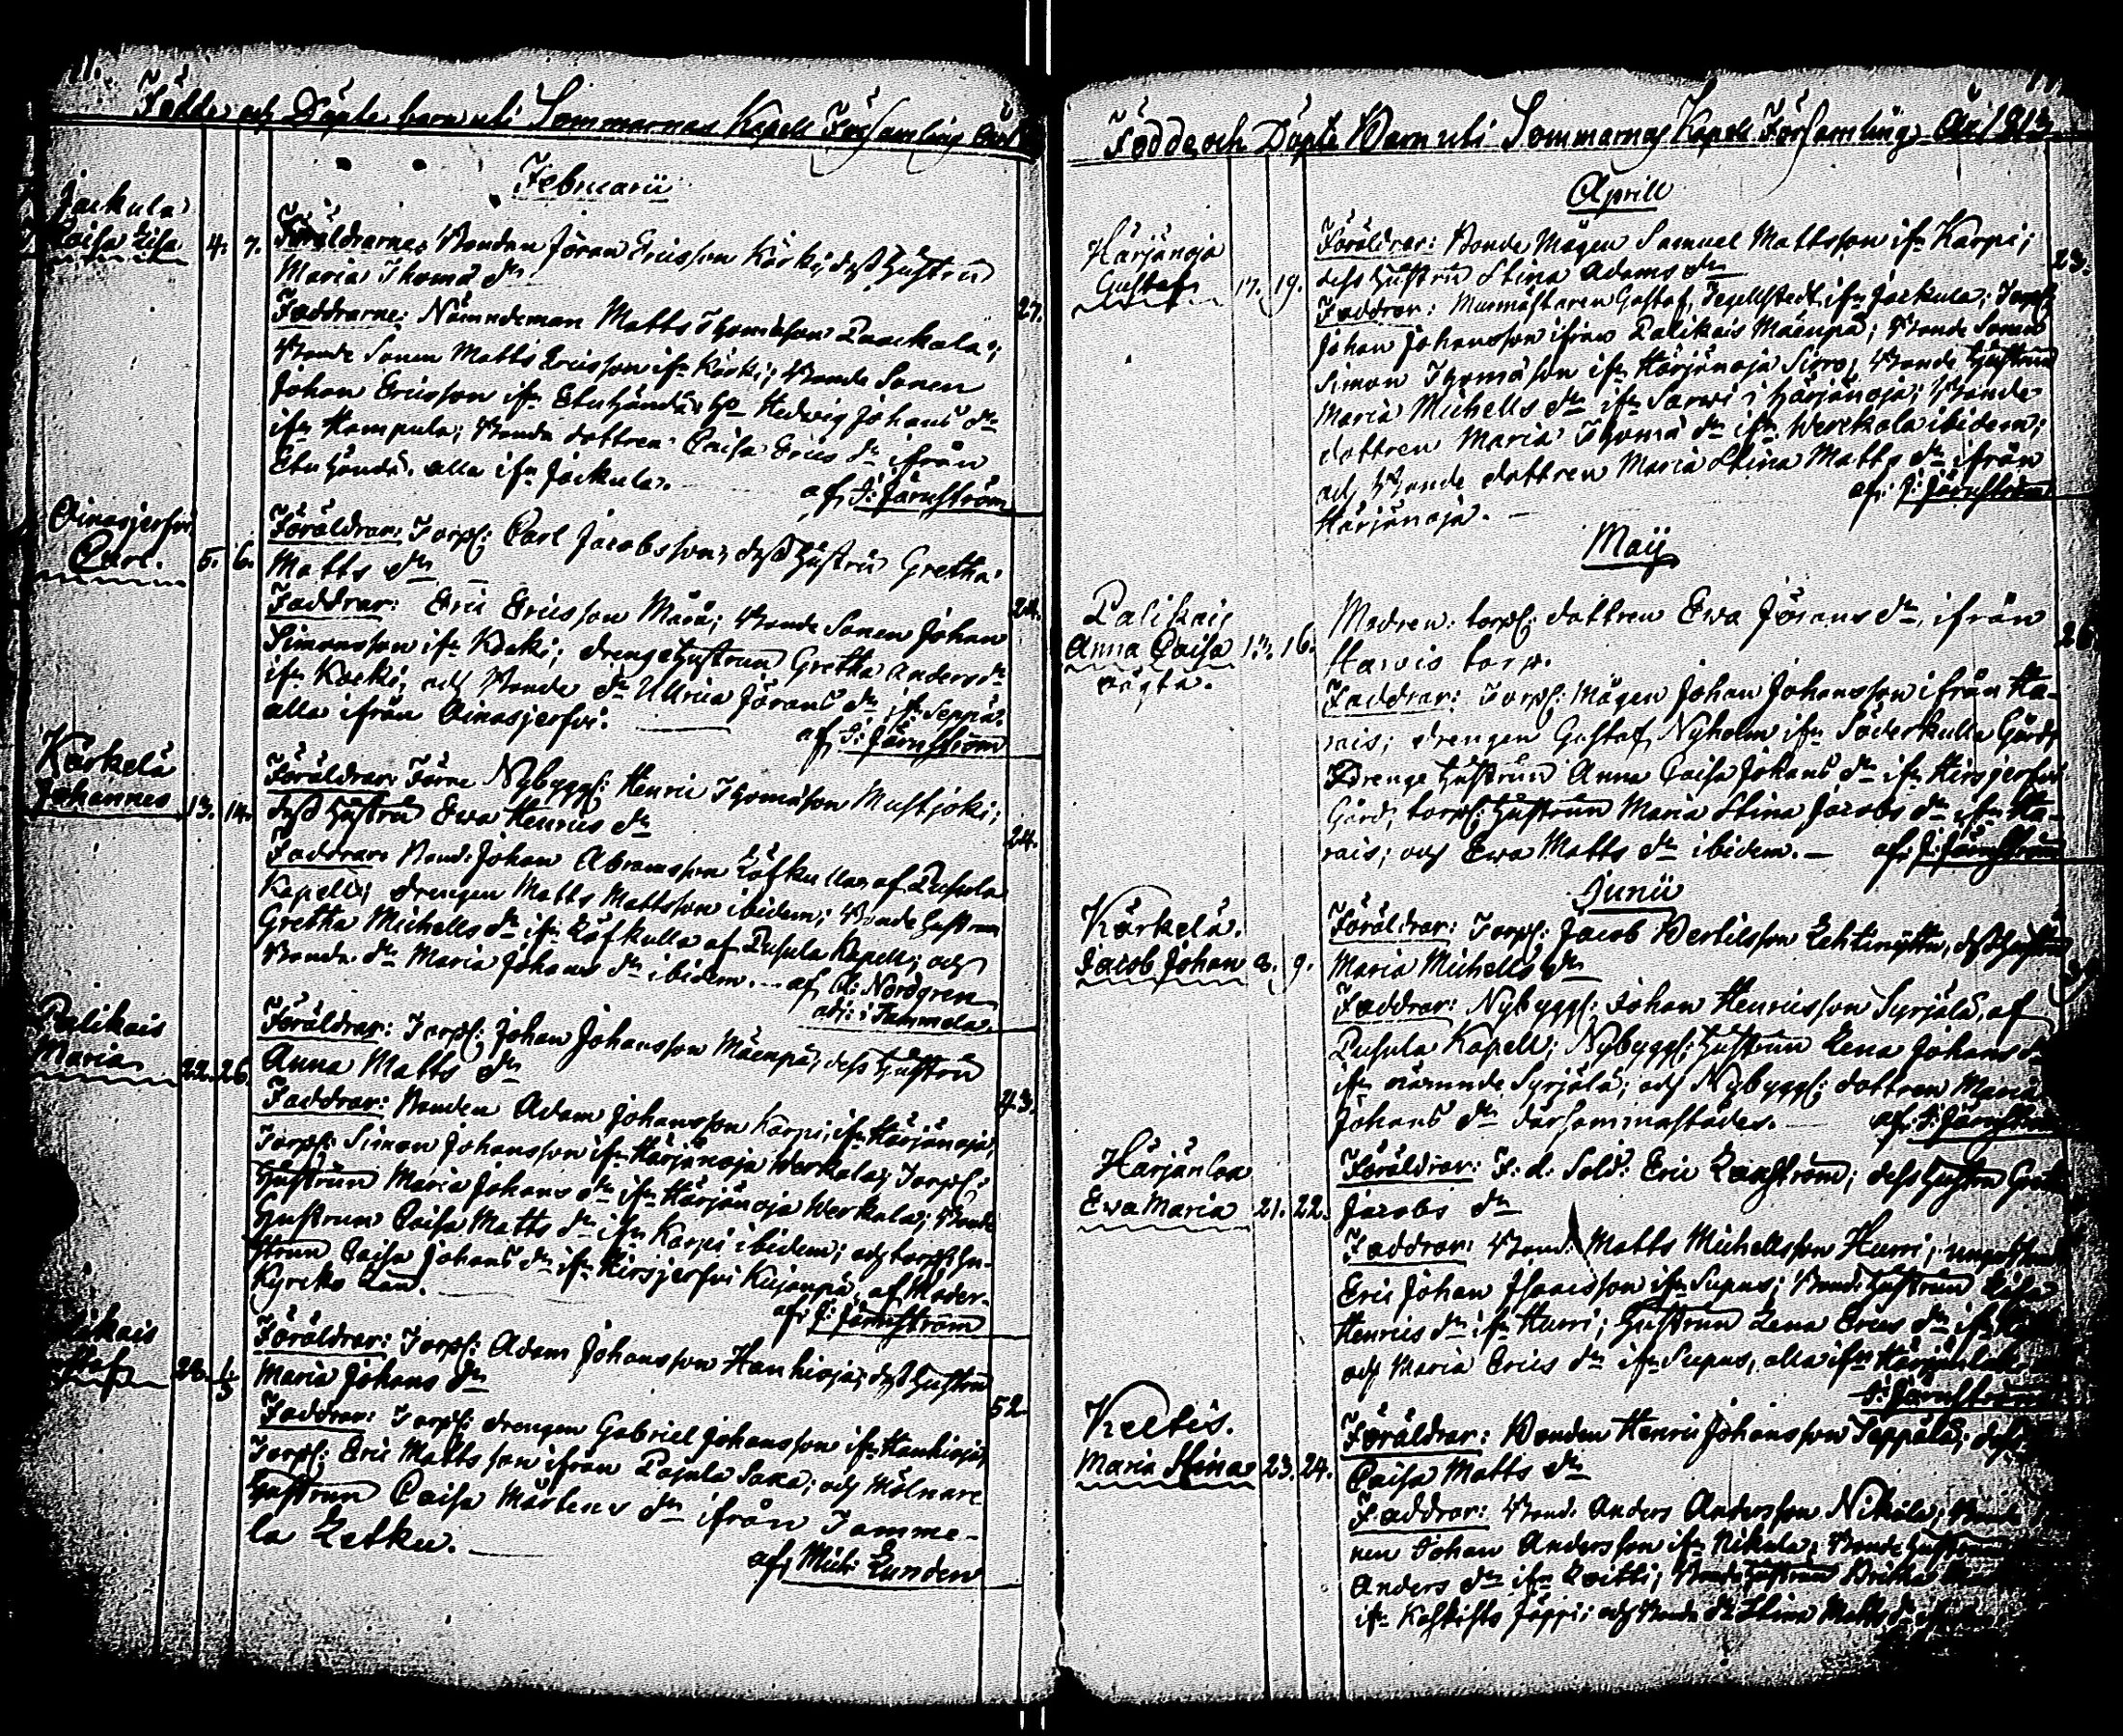 Födde och Döpte barn uti Sommarnäs Kapell Församling År
Februarii
Jäckula
Caisa Lisa 4. 7. Föräldrarne: Bonden Jöran Ericsson Körki, dess Hustru
Maria Thomæ dr
27.
Faddrarne: Nämndeman Matts Thomasson
Bonde Sonen Matts Ericsson ifn Körki; Bonde Sonen
Johan Ericsson ifn Hedvig Johans dr
ifn Kampula; Bonde dottren Caisa Erics dr ifrån
alla ifn Jäckula.
af J: Järnström
Oinasjerfvi
Carl. 5. 6. Föräldrar: Torp: Carl Jacobsson, dess Hustru Gretha
Matts dr
24.
Faddrar: Eric Ericsson Bonde Sonen Johan
Simonsson ifn drenge Hustrun Gretha Anders dr
ifn och Bonde dr Ullrica Jörans dr ifn Seppä.
alla ifrån Oinasjerfvi.
af J: Järnström
Kärkelä
Johannes 13. 14. Föräldrar: Förre Nybygg: Henric Thomasson Mustjoki;
dess Hustru Ewa Henrics dr
24.
Faddrar: Bond: Johan Abramsson Löfkulla af Pusula
Kapell; drengen Matts Mattsson ibidem; Bonde Hustrun
Gretha Michells dr ifn Löfkulla af Pusula Kapell; och
Bonde dr Maria Johans dr ibidem. af A: Nordgren
adj: i Tammela
Palikais
Maria 22. 26. Föräldrar: Torp: Johan Johansson Mäenpä, dess Hustru
Anna Matts dr
43.
Faddrar: Bonden Adam Johansson Karpi, ifn Härjänoja,
Torp: Simon Johansson ifn Härjänoja Werkala; Torp:
Hustrun Maria Johans dr ifn Härjänoja Werkala; Bonde
Hustrun Caisa Matts dr ifn Karpi ibidem; och torp: Hu-
strun Caisa Johans dr ifn Hirsjerfvi Kujanpä, af Moder-
Kyrko
af J: Järnström
28. Föräldrar: Torp: Adam Johansson Hanhioja; dess Hustru
Maria Johans dr
52.
Faddrar: Torp: drengen Gabriel Johansson ifn Hanhioja,
Torp: Eric Mattsson ifrån Pajula och Mölnare
Hustrun Caisa Mårtens dr ifrån Tamme-
la Letku.
af Mich: Lunden
Födde och Döpte Barn uti Sommarnäs Kapell Församling År 1813
Aprill
Härjänoja
Gustaf 17. 19. Föräldrar: Bonde Mågen Samuel Mattsson ifn Karpi;
dess Hustru Stina Adams dr
23.
Faddrar: Murmästaren Gustaf Tegellstedt ifn Jäckula; Torp:
Johan Johansson ifrån Palikais Mäenpä; Bonde Sonen
Simon Thomasson ifn Härjänoja Bonde Hustrun
Maria Michells dr ifn Sarwi i Härjänoja; Bonde
dottren Maria Thomæ dr ifn Werckala ibidem;
och Bonde dottren Maria Stina Matts dr ifrån
Härjänoja.
af: J: Järnström
Maij
Palikais
Anna Caisa 13. 16. Modren: torp: dottren Ewa Jörans dr, ifrån
oägta. torp.
26
Faddrar: Torp: Mågen Johan Johansson ifrån Ha-
rais; drengen Gustaf Nyholm ifn Söderkulla Gård,
drenge Hustrun Anna Caisa Johans dr ifn Hirsjerfvi
Gård; torp: Hustrun Maria Stina Jacobs dr ifn Ha-
rais; och Ewa Matts dr ibidem. af: J: Järnström
Junii
Kärkelä.
Jacob Johan 8. 9. Föräldrar: Torp: Jacob Bertilsson dess Hustru
Maria Michells dr
Faddrar: Nybygg: Johan Henricsson Syrjälä, af
Pusula Kapell; Nybygg: Hustrun Lena Johans dr
ifn nämnde Syrjälä; och Nybygg: dottren Maria
Johans dr därsammastädes. af: J: Järnström
Härjänlaa
Ewa Maria 21. 22. Föräldrar: F: d: Sold: Eric dess Hustru
Jacobs dr
Faddrar: Bond: Matts Michellsson Hurri;
Eric Johan Isacsson ifn Supus; Bonde Hustrun Lisa
Henrics dr ifn Hurri; Hustrun Lena Erics dr ifn
och Maria Erics dr ifn Supus, alla ifn
J: Järnström
Keltis.
Maria Stina 23. 24. Föräldrar: Bonden Henric Johansson Seppälä; dess
Caisa Matts dr
Faddrar: Bond: Anders Andersson Nikula; Bonde
nen Johan Andersson ifn Nikula; Bonde Hustrun
Anders dr ifn Bonde Hustrun Britha
ifn och Bonde dr Stina Matts dr